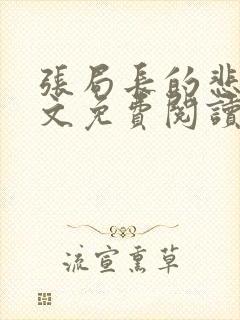 張局長的悲
文免費閱讀
流宣熏草